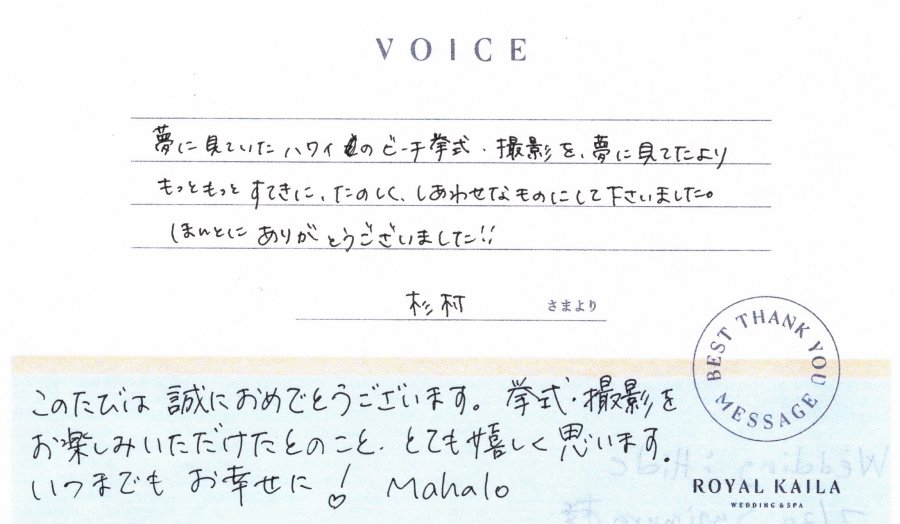 VOICE
夢に見ていたハワイのビーチ挙式・撮影を、夢に見てたより
もっともっとすてきに、たのしく、しあわせなものにして下さいました。
ほんとにありがとうございました!!
杉村 さまより
BEST THANK YOU MESSAGE
このたびは誠におめでとうございます。挙式・撮影を
お楽しみいただけたとのこと、とても嬉しく思います。
いつまでもお幸せに! Mahalo
ROYAL KAILA
WEDDING & SPA